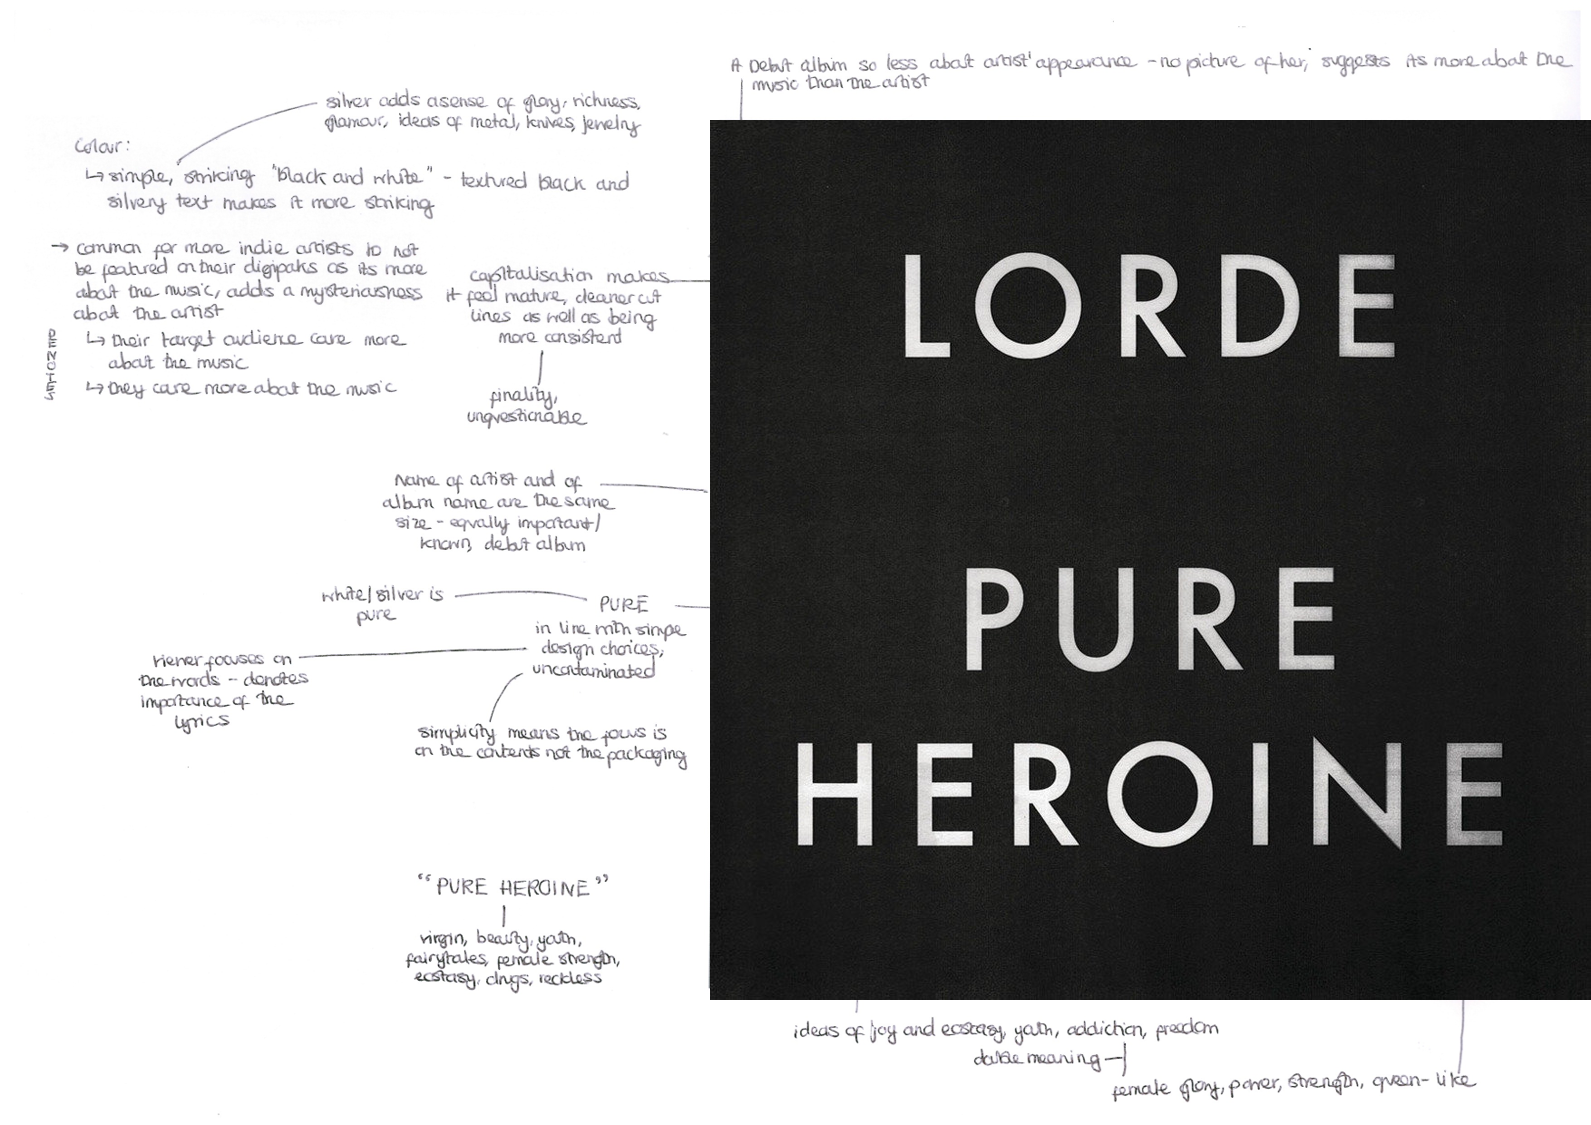 A Debut album so less about artist' appearance - no picture of her, suggests its more about the
music than the artist
silver adds a sense of glory, richness,
glamour, ideas of metal, knives, jewelry
Colour:
↳ simple, striking "black and white" - textured black and
silvery text makes it more striking
→ common for more indie artists to not
be featured on their digipaks as its more
about the music, adds a mysteriousness
about the artist
↳ their target audience care more
about the music
↳ they care more about the music
DENOTES
capitalisation makes
it feel mature, cleaner cut
lines as well as being
more consistent
finality,
unquestionable
Name of artist and of
album name are the same
size - equally important/
known, debut album
white/silver is
pure
PURE
in line with simple
design choices,
uncontaminated
viewer focuses on
the words - denotes
importance of the
lyrics
simplicity means the focus is
on the contents not the packaging
"PURE HEROINE"
virgin, beauty, youth,
fairytales, female strength,
ecstasy, drugs, reckless
LORDE
PURE
HEROINE
ideas of joy and ecstasy, youth, addiction, freedom
double meaning
female glory, power, strength, queen-like